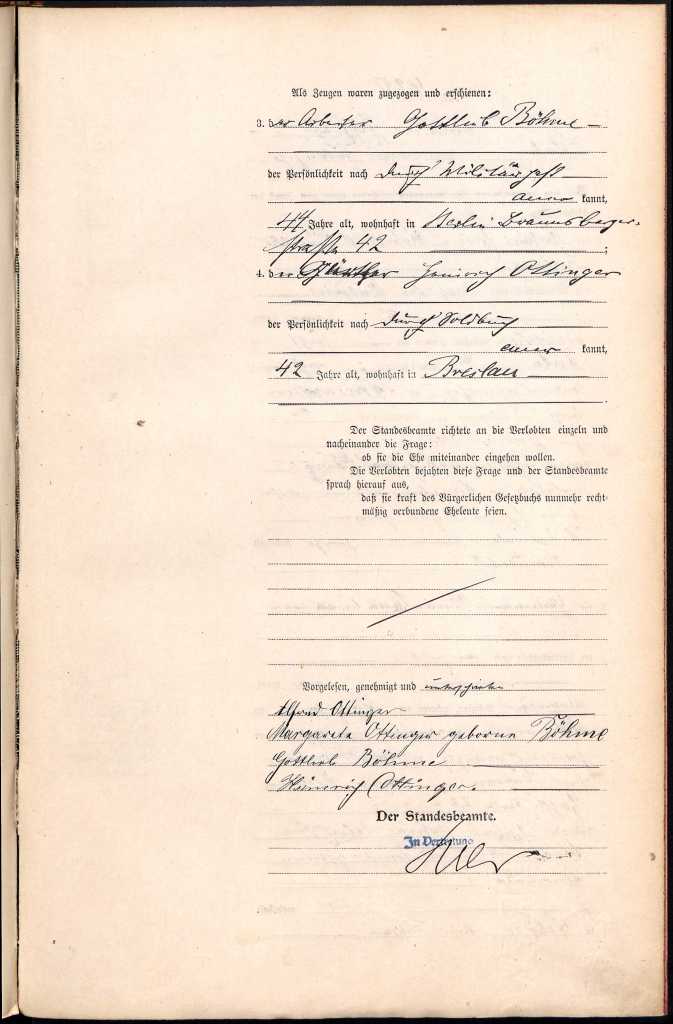 Als Zeugen waren zugezogen und erschienen:
3. der Arbeiter Gottlieb Böhme
der Persönlichkeit nach durch Militärpaß
aner kannt,
44 Jahre alt, wohnhaft in Berlin Braunsberger-
straße 42 ;
4. der Heinrich Ottinger
der Persönlichkeit nach durch Soldbuch
aner kannt,
42 Jahre alt, wohnhaft in Breslau
.
Der Standesbeamte richtete an die Verlobten einzeln und
nacheinander die Frage:
ob sie die Ehe miteinander eingehen wollen.
Die Verlobten bejahten diese Frage und der Standesbeamte
sprach hierauf aus,
daß sie kraft des Bürgerlichen Gesetzbuchs nunmehr recht-
mäßig verbundene Eheleute seien.
Vorgelesen, genehmigt und unterschrieben
Alfred Ottinger
Margarete Ottinger geborne Böhme
Gottlieb Böhme
Heinrich Ottinger.
Der Standesbeamte.
In Vertretung